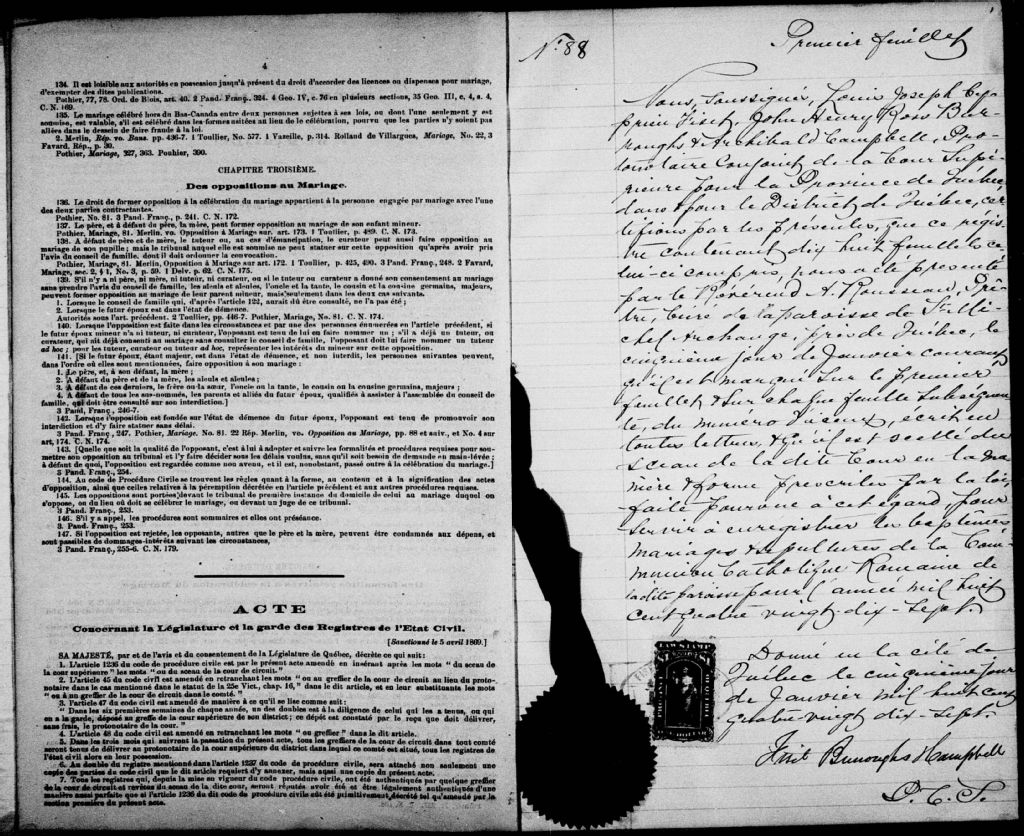 4
134. Il est loisible aux autorités en possession jusqu'à présent du droit d'accorder des licences ou dispenses pour mariage,
d'exempter des dites publications.
Pothier, 77, 78. Ord. de Blois, art. 40. 2 Pand. Franç., 324. 4 Geo. IV, c. 76 en plusieurs sections, 35 Geo. III, c. 4, s. 4.
C. N. 169.
135. Le mariage célébré hors du Bas-Canada entre deux personnes sujettes à ses lois, ou dont l'une seulement y est
soumise, est valable, s'il est célébré dans les formes usitées au lieu de la célébration, pourvu que les parties n'y soient pas
allées dans le dessein de faire fraude à la loi.
2. Merlin, Rép. vo. Bans. pp. 436-7. 1 Toullier, No. 577. 1 Vazeille, p. 314. Rolland de Villargues, Mariage, No. 22, 3
Favard, Rép., p. 30.
Pothier, Mariage, 327, 363. Pouhier, 390.
CHAPITRE TROISIÈME.
Des oppositions au Mariage.
136. Le droit de former opposition à la célébration du mariage appartient à la personne engagée par mariage avec l'une
des deux parties contractantes.
Pothier, No. 81. 3 Pand. Franç., p. 241. C. N. 172.
137. Le père, et à défaut du père, la mère, peut former opposition au mariage de son enfant mineur.
Pothier, Mariage, 81. Merlin, vo. Opposition à Mariage sur. art. 173. 1 Toullier, p. 489. C. N. 173.
138. A défaut de père et de mère, le tuteur ou, au cas d'émancipation, le curateur peut aussi faire opposition au
mariage de son pupille; mais le tribunal auquel elle est soumise ne peut statuer sur cette opposition qu'après avoir pris
l'avis du conseil de famille. dont il doit ordonner la convocation.
Pothier, Mariage, 81. Merlin, Opposition à Mariage sur art. 172. 1 Toullier, p. 425, 490. 3 Pand. Franç., 248. 2 Favard,
Mariage, sec. 2, § 1, No. 3, p. 59. 1 Delv. p. 62. C. N. 175.
139. S'il n'y a ni père, ni mère, ni tuteur, ni curateur, ou si le tuteur ou curateur a donné son consentement au mariage
sans prendre l'avis du conseil de famille, les aïeuls et aïeules, l'oncle et la tante, le cousin et la cousine germains, majeurs,
peuvent former opposition au mariage de leur parent mineur, mais seulement dans les deux cas suivants.
1. Lorsque le conseil de famille qui, d'après l'article 122, aurait dû être consulté, ne l'a pas été;
2. Lorsque le futur époux est dans l'état de démence.
Autorités sous l'art. précédent. 2 Toullier, pp. 446-7. Pothier, Mariage, No. 81. C. N. 174.
140. Lorsque l'opposition est faite dans les circonstances et par une des personnes énumérées en l'article précédent, si
le futur époux mineur n'a ni tuteur, ni curateur, l'opposant est tenu de lui en faire nommer un; s'il a déjà un tuteur, ou
curateur, qui ait déjà consenti au mariage sans consulter le conseil de famille, l'opposant doit lui faire nommer un tuteur
ad hoc; pour les tuteur, curateur ou tuteur ad hoc, représenter les intérêts du mineur sur cette opposition.
141. [Si le futur époux, étant majeur, est dans l'état de démence, et non interdit, les personnes suivantes peuvent,
dans l'ordre où elles sont mentionnées, faire opposition à son mariage:
1. Le père, et, à son défaut, la mère;
2. A défaut du père et de la mère, les aïeuls et aïeules;
3. A défaut de ces derniers, le frère ou la sœur, l'oncle ou la tante, le cousin ou la cousine germains, majeurs;
4. A défaut de tous les sus-nommés, les parents et alliés du futur époux, qualifiés à assister à l'assemblée du conseil de
famille, qui doit être consulté sur son interdiction.]
3 Pand. Franç., 246-7.
142. Lorsque l'opposition est fondée sur l'état de démence du futur époux, l'opposant est tenu de promouvoir son
interdiction et d'y faire statuer sans délai.
3 Pand. Franç., 247. Pothier, Mariage. No. 81. 22 Rép. Merlin, vo. Opposition au Mariage, pp. 88 et suiv., et No. 4 sur
art, 174. C. N. 174.
143. [Quelle que soit la qualité de l'opposant, c'est à lui à adopter et suivre les formalités et procédures requises pour sou-
mettre son opposition au tribunal et l'y faire décider sous les délais voulus, sans qu'il soit besoin de demande en main-levée;
à défaut de quoi, l'opposition est regardée comme non avenu, et il est, nonobstant, passé outre à la célébration du mariage.]
3 Pand. Franç., 254.
144. Au code de Procédure Civile se trouvent les règles quant à la forme, au contenu et à la signification des actes
d'opposition, ainsi que celles relatives à la péremption décrétée en l'article précédent et aux autres procédures requises.
145. Les oppositions sont portées devant le tribunal de première instance du domicile de celui au mariage duquel on
s'oppose, ou du lieu où doit se célébrer le mariage, ou devant un juge de ce tribunal.
3 Pand. Franç., 253.
146. S'il y a appel, les procédures sont sommaires et elles ont préséance.
3. Pand. Franç., 253.
147. Si l'opposition est rejetée, les opposants, autres que le père et la mère, peuvent être condamnés aux dépens, et
sont passibles de dommages-intérêts suivant les circonstances,
3 Pand. Franç., 255-6. C. N. 179.
ACTE
Concernant la Législature et la garde des Registres de l'Etat Civil.
[Sanctionné le 5 avril 1869.]
SA MAJESTÉ, par et de l'avis et du consentement de la Législature de Québec, décrète ce qui suit:
1. L'article 1236 du code de procédure civile est par le présent acte amendé en insérant après les mots "du sceau de
la cour supérieure" les mots "ou du sceau de la cour de circuit."
2. L'article 45 du code civil est amendé en retranchant les mots "ou au greffier de la cour de circuit au lieu du proto-
notaire dans le cas mentionné dans le statut de la 25e Vict., chap. 16," dans le dit article, et en leur substituant les mots
"ou à un greffier de la cour de circuit dans le comté."
3. l'article 47 du code civil est amendé de manière à ce qu'il se lise comme suit:
"Dans les six premières semaines de chaque année, un des doubles est à la diligence de celui qui les a tenus, ou qui
en a la garde, déposé au greffe de la cour supérieure de son district; ce dépôt est constaté par le reçu que doit délivrer,
sans frais, le protonotaire de la cour."
4. L'article 48 du code civil est amendé en retranchant les mots "ou greffier" dans le dit article.
5. Dans les trois mois qui suivront la passation du présent acte, tous les greffiers de la cour de circuit dans tout comté
seront tenus de délivrer au protonotaire de la cour supérieure du district dans lequel ce comté est situé, tous les registres de
l'état civil alors en leur possession.
6. Au double du registre mentionné dans l'article 1237 du code de procédure civile, sera attaché non seulement une
copie des parties du code civil que le dit article requiert d'y annexer, mais aussi une copie du présent acte.
7. Tous les registres qui, depuis la mise en vigueur du code procédure civile, ont été authentiqués par quelque greffier
de la cour de circuit et revêtus du sceau de la dite cour, seront réputés avoir été et être légalement authentiqués d'une
manière aussi parfaite que si l'article 1236 du dit code de procédure civile eût été primitivement décrété tel qu'amendé par la
section première du présent acte.
No. 88
Premier feuillet
Nous, Soussigné, Louis Joseph Cy-
prien Fiset, John Henry Ross Bur-
roughs & Archibald Campbell, Pro-
tonotaire Conjoint de la Cour Supé-
rieure pour la Province de Québec,
dans & pour le District de Québec, cer-
tifions par les présentes, que ce régis-
tre contenant dix huit feuillets ce-
lui-ci compris, nous a été présenté
par le Révérend A. Rousseau, Prê-
tre, Curé de la paroisse de St. Mi-
chel Archange, près de Québec, le
cinquième jour de Janvier courant
qu'il est marqué sur le premier
feuillet & sur chaque feuille subséquen-
te, du numéro d'iceux, écrit en
toutes lettres, & qu'il est scellé du
sceau de la dite Cour en la ma-
nière & forme prescrites par la loi,
faite & pourvue à cet égard, pour
servir à enregistrer les baptêmes
mariages & sépultures de la Com-
munion Catholique Romaine de
la dite paroisse pour l'année mil huit
cent quatre vingt dix-sept.
Donné en la cité de
Québec le cinquième jour
de Janvier mil huit cent
quatre vingt dix-sept.
Fiset Burroughs & Campbell
P. C. S.
LAW STAMP